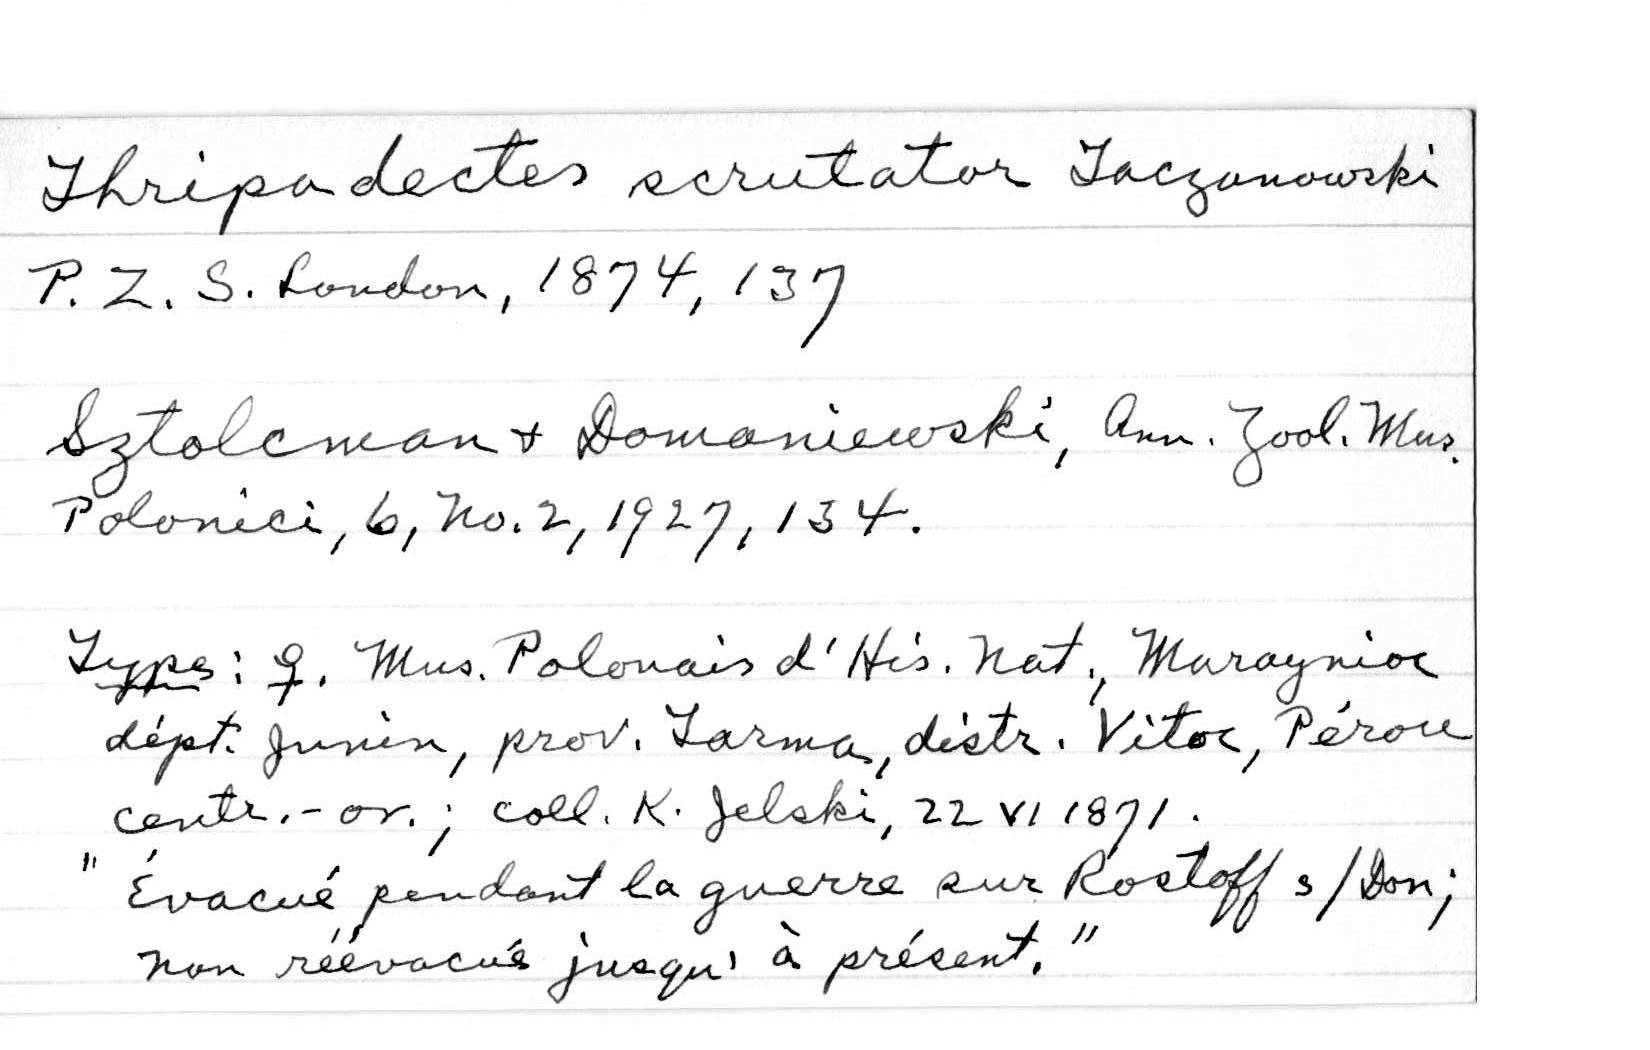 Thripadectes scrutator Taczanowski
P. Z. S. London, 1874, 137
Sztolcman + Domaniewski, Ann. Zool. Mus.
Polonici, 6, No. 2, 1927, 134.
Type: ♀. Mus. Polonais d'His. Nat., Maraynioc
dépt. Junin, prov. Tarma, distr. Vitoc, Pérou
centr.-or.; coll. K. Jelski, 22 VI 1871.
"Évacué pendant la guerre sur Rostoff s/Don;
non réévacué jusqu'à présent."